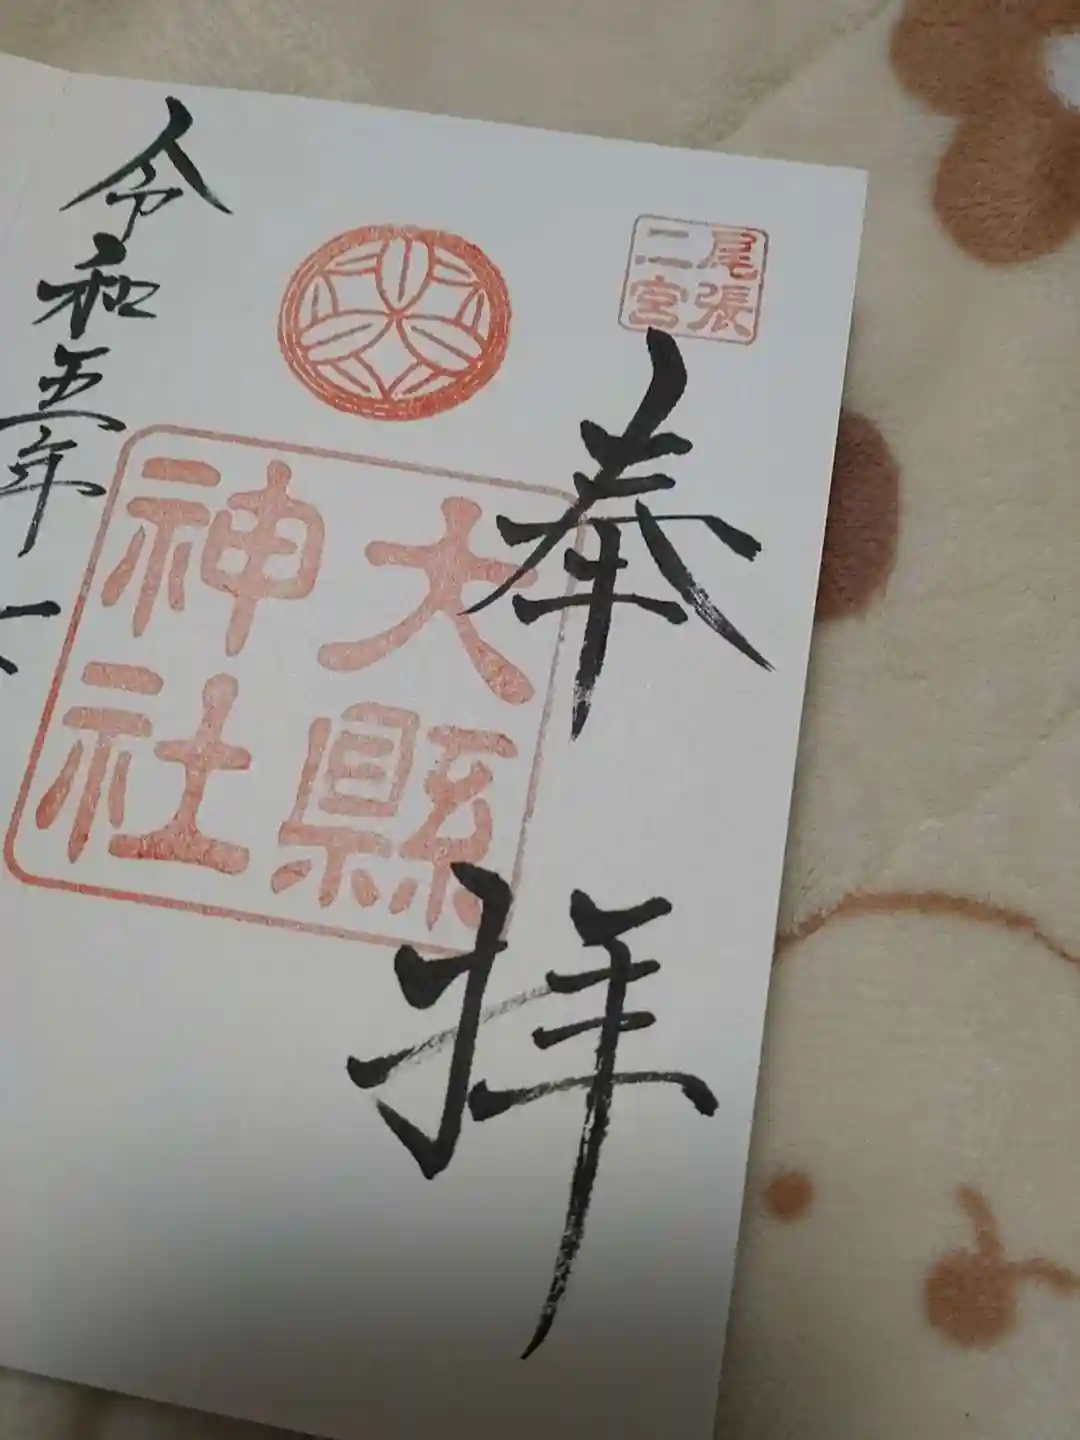 尾張
二宮
奉拝
大縣
神社
令和五年